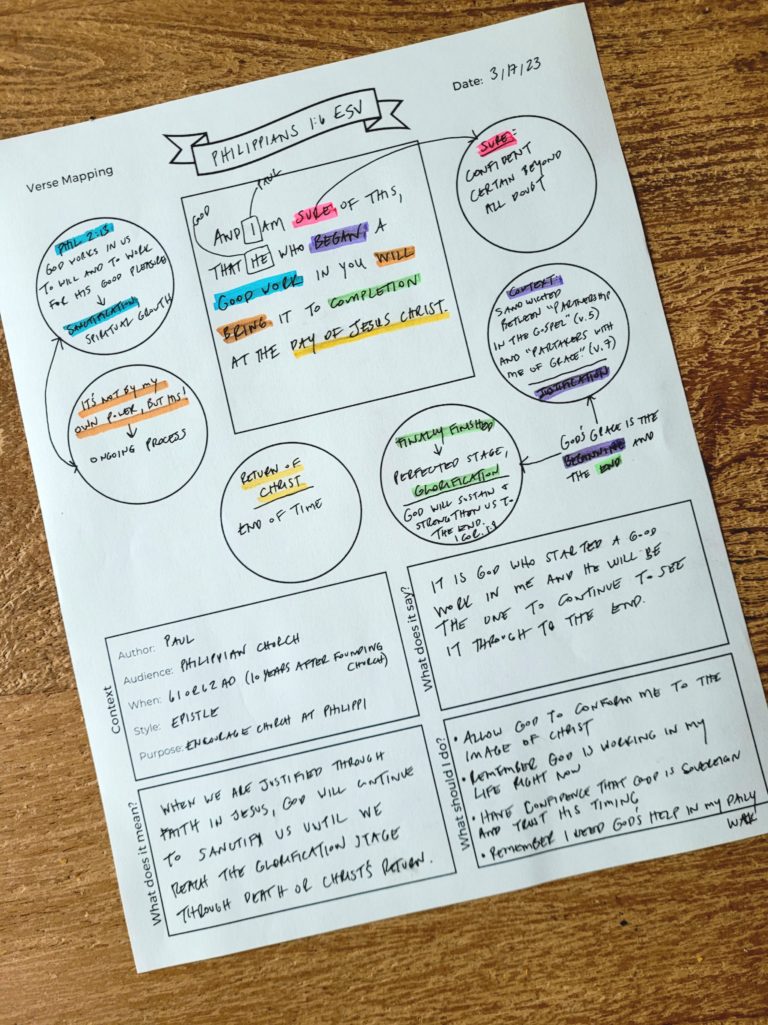 Date: 3/17/23
PHILIPPIANS 1:6 ESV
Verse Mapping
PAUL
GOD
AND I AM SURE OF THIS,
THAT HE WHO BEGAN A
GOOD WORK IN YOU WILL
BRING IT TO COMPLETION
AT THE DAY OF JESUS CHRIST.
SURE:
CONFIDENT
CERTAIN BEYOND
ALL DOUBT
PHIL 2:13
GOD WORKS IN US
TO WILL AND TO WORK
FOR HIS GOOD PLEASURE
SANCTIFICATION
SPIRITUAL GROWTH
CONTEXT:
SANDWICHED
BETWEEN "PARTNERSHIP
IN THE GOSPEL" (V.5)
AND "PARTAKERS WITH
ME OF GRACE." (V.7)
JUSTIFICATION
IT'S NOT BY MY
OWN POWER, BUT HIS!
ONGOING PROCESS
FINALLY FINISHED
PERFECTED STAGE,
GLORIFICATION
GOD WILL SUSTAIN &
STRENGTHEN US TO
THE END.
1 COR. 1:8
GOD'S GRACE IS THE
BEGINNING AND
THE END
RETURN OF
CHRIST
END OF TIME
Context
Author: PAUL
Audience: PHILIPPIAN CHURCH
When: 61 OR 62 AD (10 YEARS AFTER FOUNDING
CHURCH)
Style: EPISTLE
Purpose: ENCOURAGE CHURCH AT PHILIPPI
What does it say?
IT IS GOD WHO STARTED A GOOD
WORK IN ME AND HE WILL BE
THE ONE TO CONTINUE TO SEE
IT THROUGH TO THE END.
What does it mean?
WHEN WE ARE JUSTIFIED THROUGH
FAITH IN JESUS, GOD WILL CONTINUE
TO SANCTIFY US UNTIL WE
REACH THE GLORIFICATION STAGE
THROUGH DEATH OR CHRIST'S RETURN.
What should I do?
• ALLOW GOD TO CONFORM ME TO THE
IMAGE OF CHRIST
• REMEMBER GOD IS WORKING IN MY
LIFE RIGHT NOW
• HAVE CONFIDENCE THAT GOD IS SOVEREIGN
AND TRUST HIS TIMING
• REMEMBER I NEED GOD'S HELP IN MY DAILY
WALK